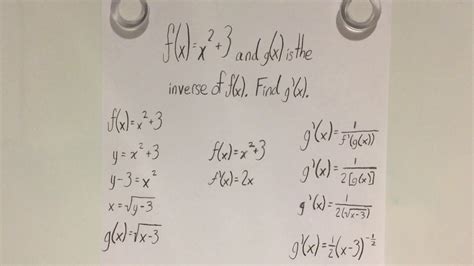 f(x)=x²+3 and g(x) is the
inverse of f(x). Find g'(x).
f(x)=x²+3
y=x²+3
y-3=x²
x=√y-3
g(x)=√x-3
f(x)=x²+3
f'(x)=2x
g'(x)=1/f'(g(x))
g'(x)=1/2[g(x)]
g'(x)=1/2(√x-3)
g'(x)=1/2(x-3)^-1/2